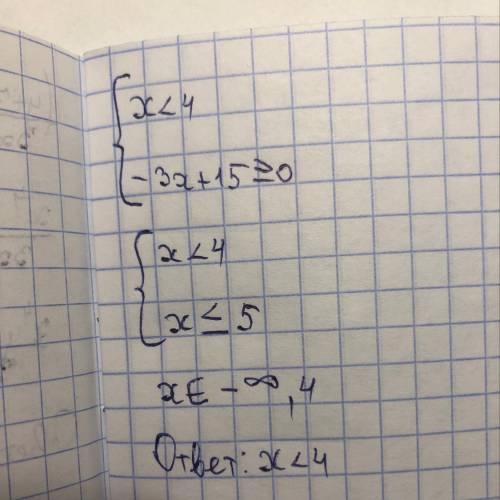 x<4
-3x+15≥0
x<4
x≤5
x∈ -∞,4
Ответ: x<4